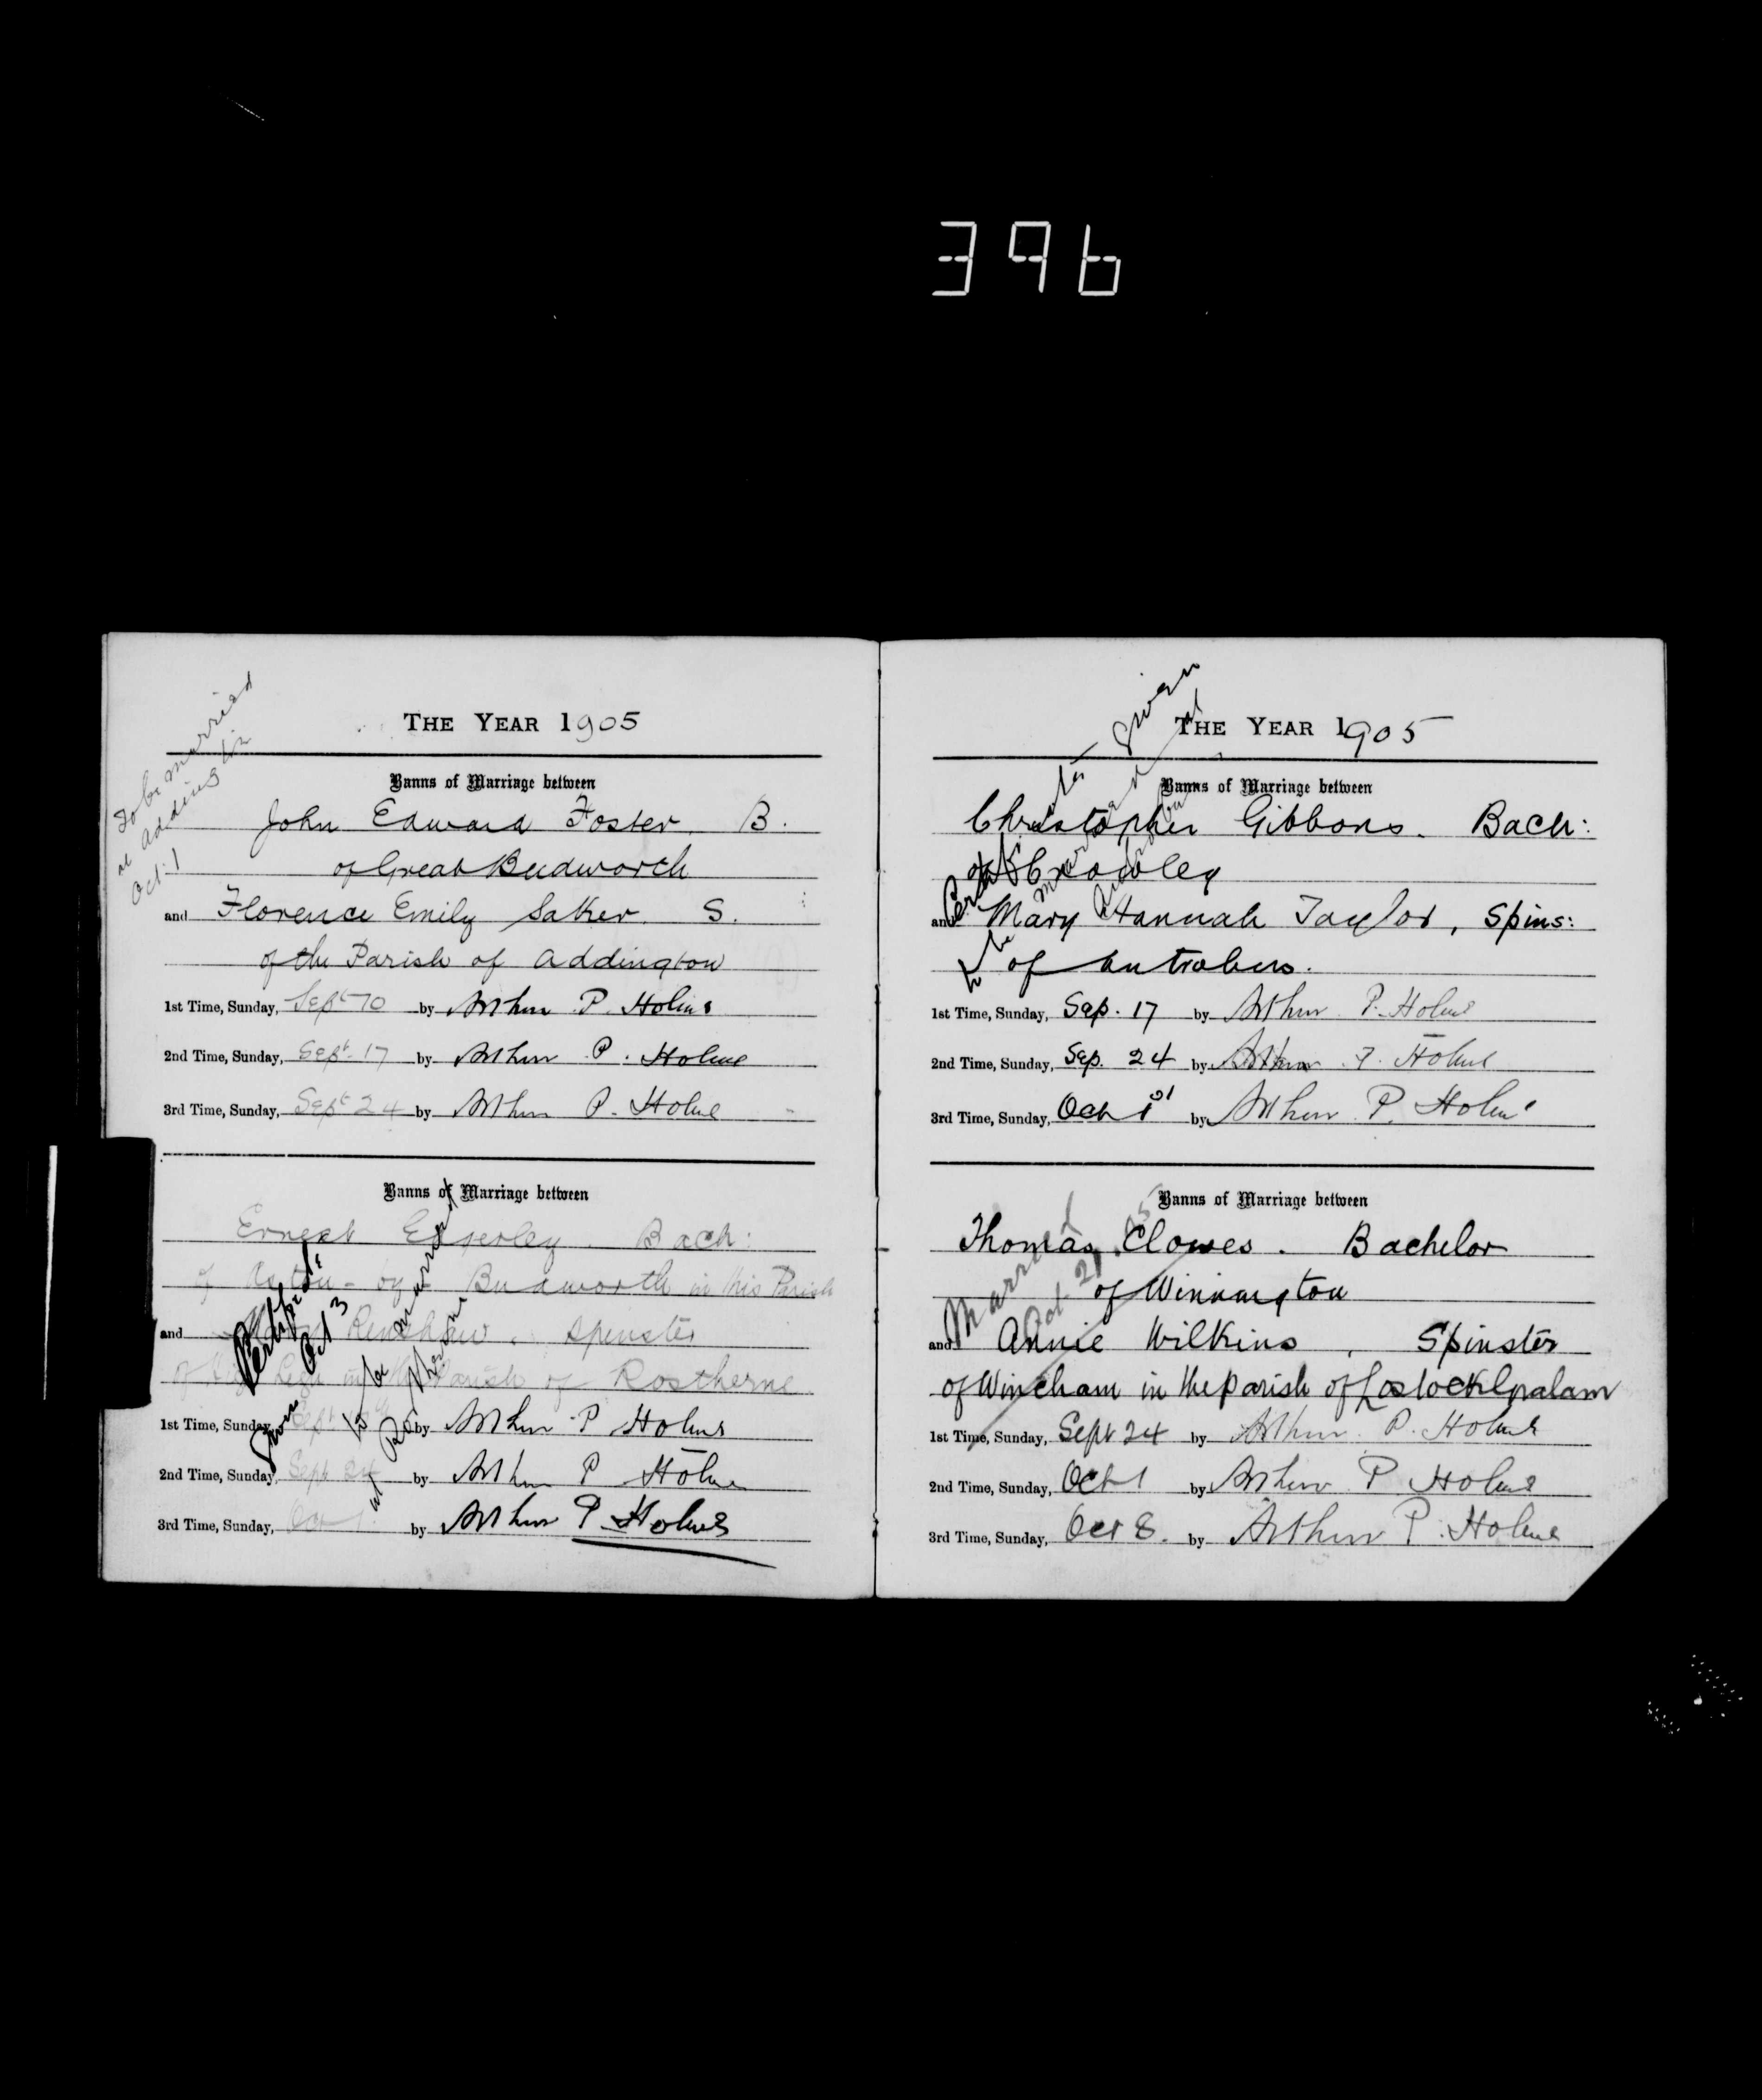 396
THE YEAR 1905
To be married
at Addington
Oct: 1
Banns of Marriage between
John Edward Foster. B.
of Great Budworth
and Florence Emily Saker. S.
of the Parish of Addington
1st Time, Sunday, Sept 10 by Arthur P. Holme
2nd Time, Sunday, Sept. 17 by Arthur P. Holme
3rd Time, Sunday, Sept 24 by Arthur P. Holme
Banns of Marriage between
Ernest Bach:
of Aston-by-Budworth in this Parish
and Renshaw. Spinster
of High Legh in the Parish of Rostherne
1st Time, Sunday, Sept by Arthur P Holme
2nd Time, Sunday, Sept 24 by Arthur P Holme
3rd Time, Sunday, Oct 1 by Arthur P. Holme
Certificate
given Oct 3
to be married
at Rostherne
THE YEAR 1905
Banns of Marriage between
Christopher Gibbons. Bach:
of Crowley
and Mary Hannah Taylor, Spins:
of Antrobus.
1st Time, Sunday, Sep. 17 by Arthur P. Holme
2nd Time, Sunday, Sep. 24 by Arthur P. Holme
3rd Time, Sunday, Oct 1st by Arthur P. Holme
Certificate given
to be married at
Antrobus
Banns of Marriage between
Thomas Clowes. Bachelor
of Winnington
and Annie Wilkins, Spinster
of Wincham in the parish of Lostock Gralam
1st Time, Sunday, Sept 24 by Arthur P. Holme
2nd Time, Sunday, Oct 1 by Arthur P. Holme
3rd Time, Sunday, Oct 8. by Arthur P. Holme
Married
Oct. 21. 05